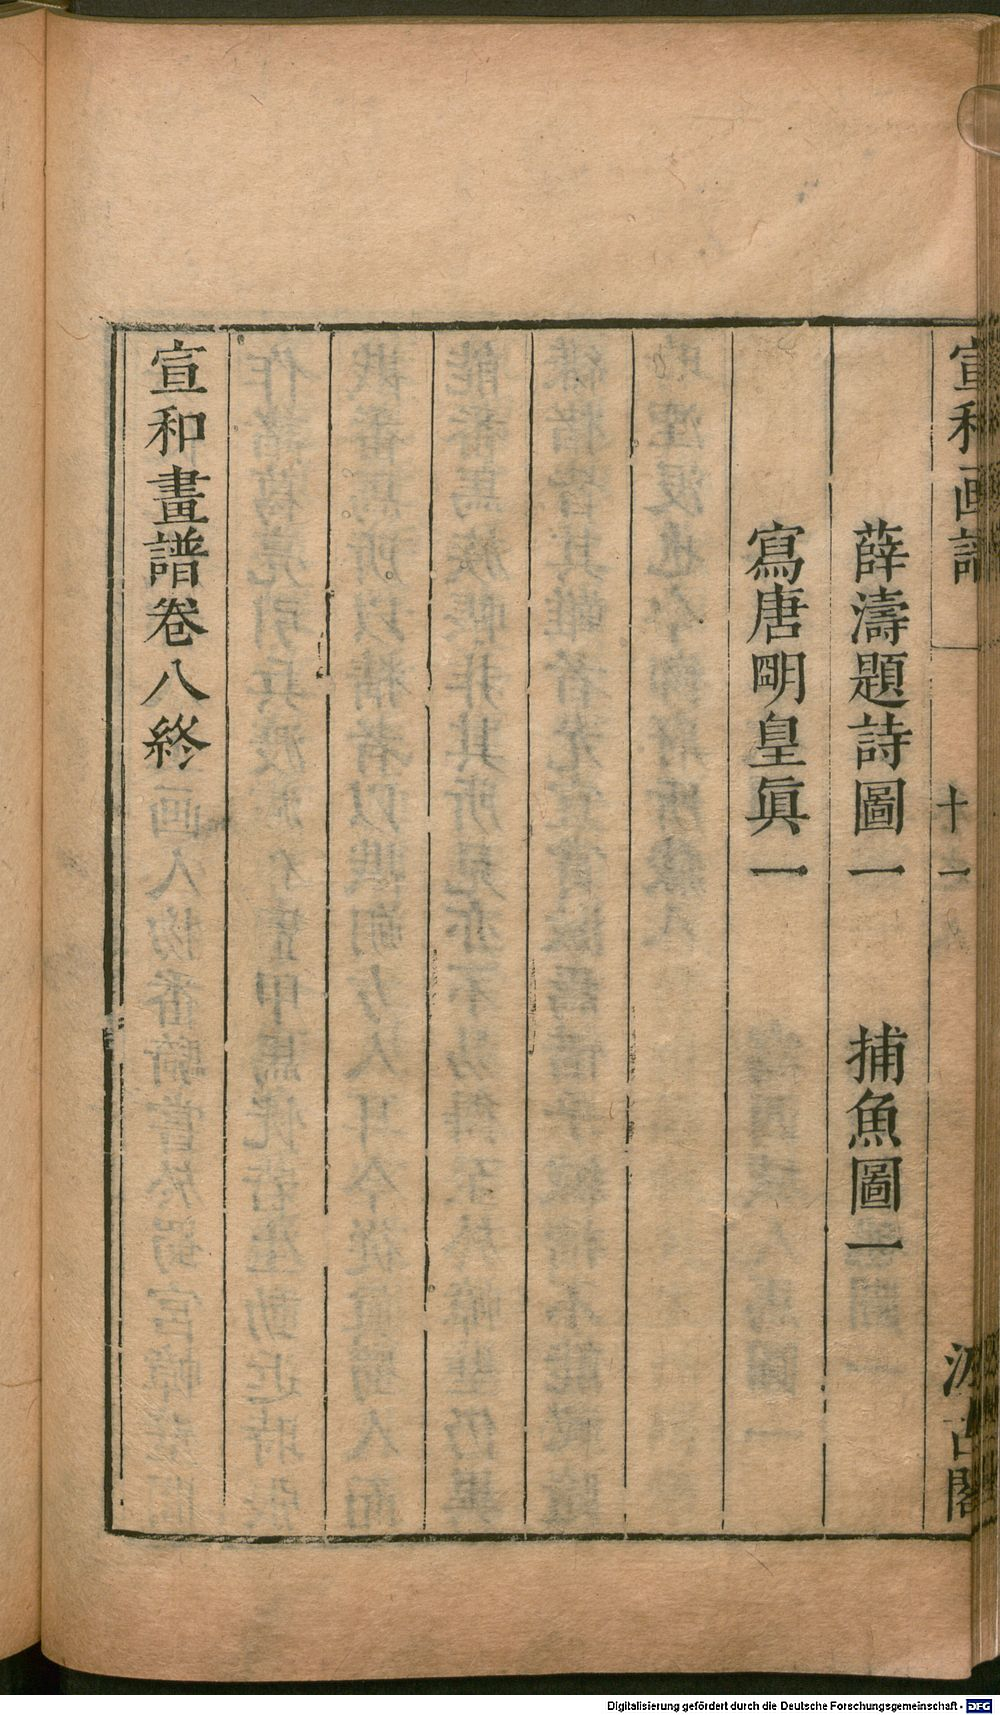 宣和画譜 十一 汲古閣
薛濤題詩圖一 捕魚圖一
寫唐明皇眞一
宣和畫譜卷八終
Digitalisierung gefördert durch die Deutsche Forschungsgemeinschaft - DFG